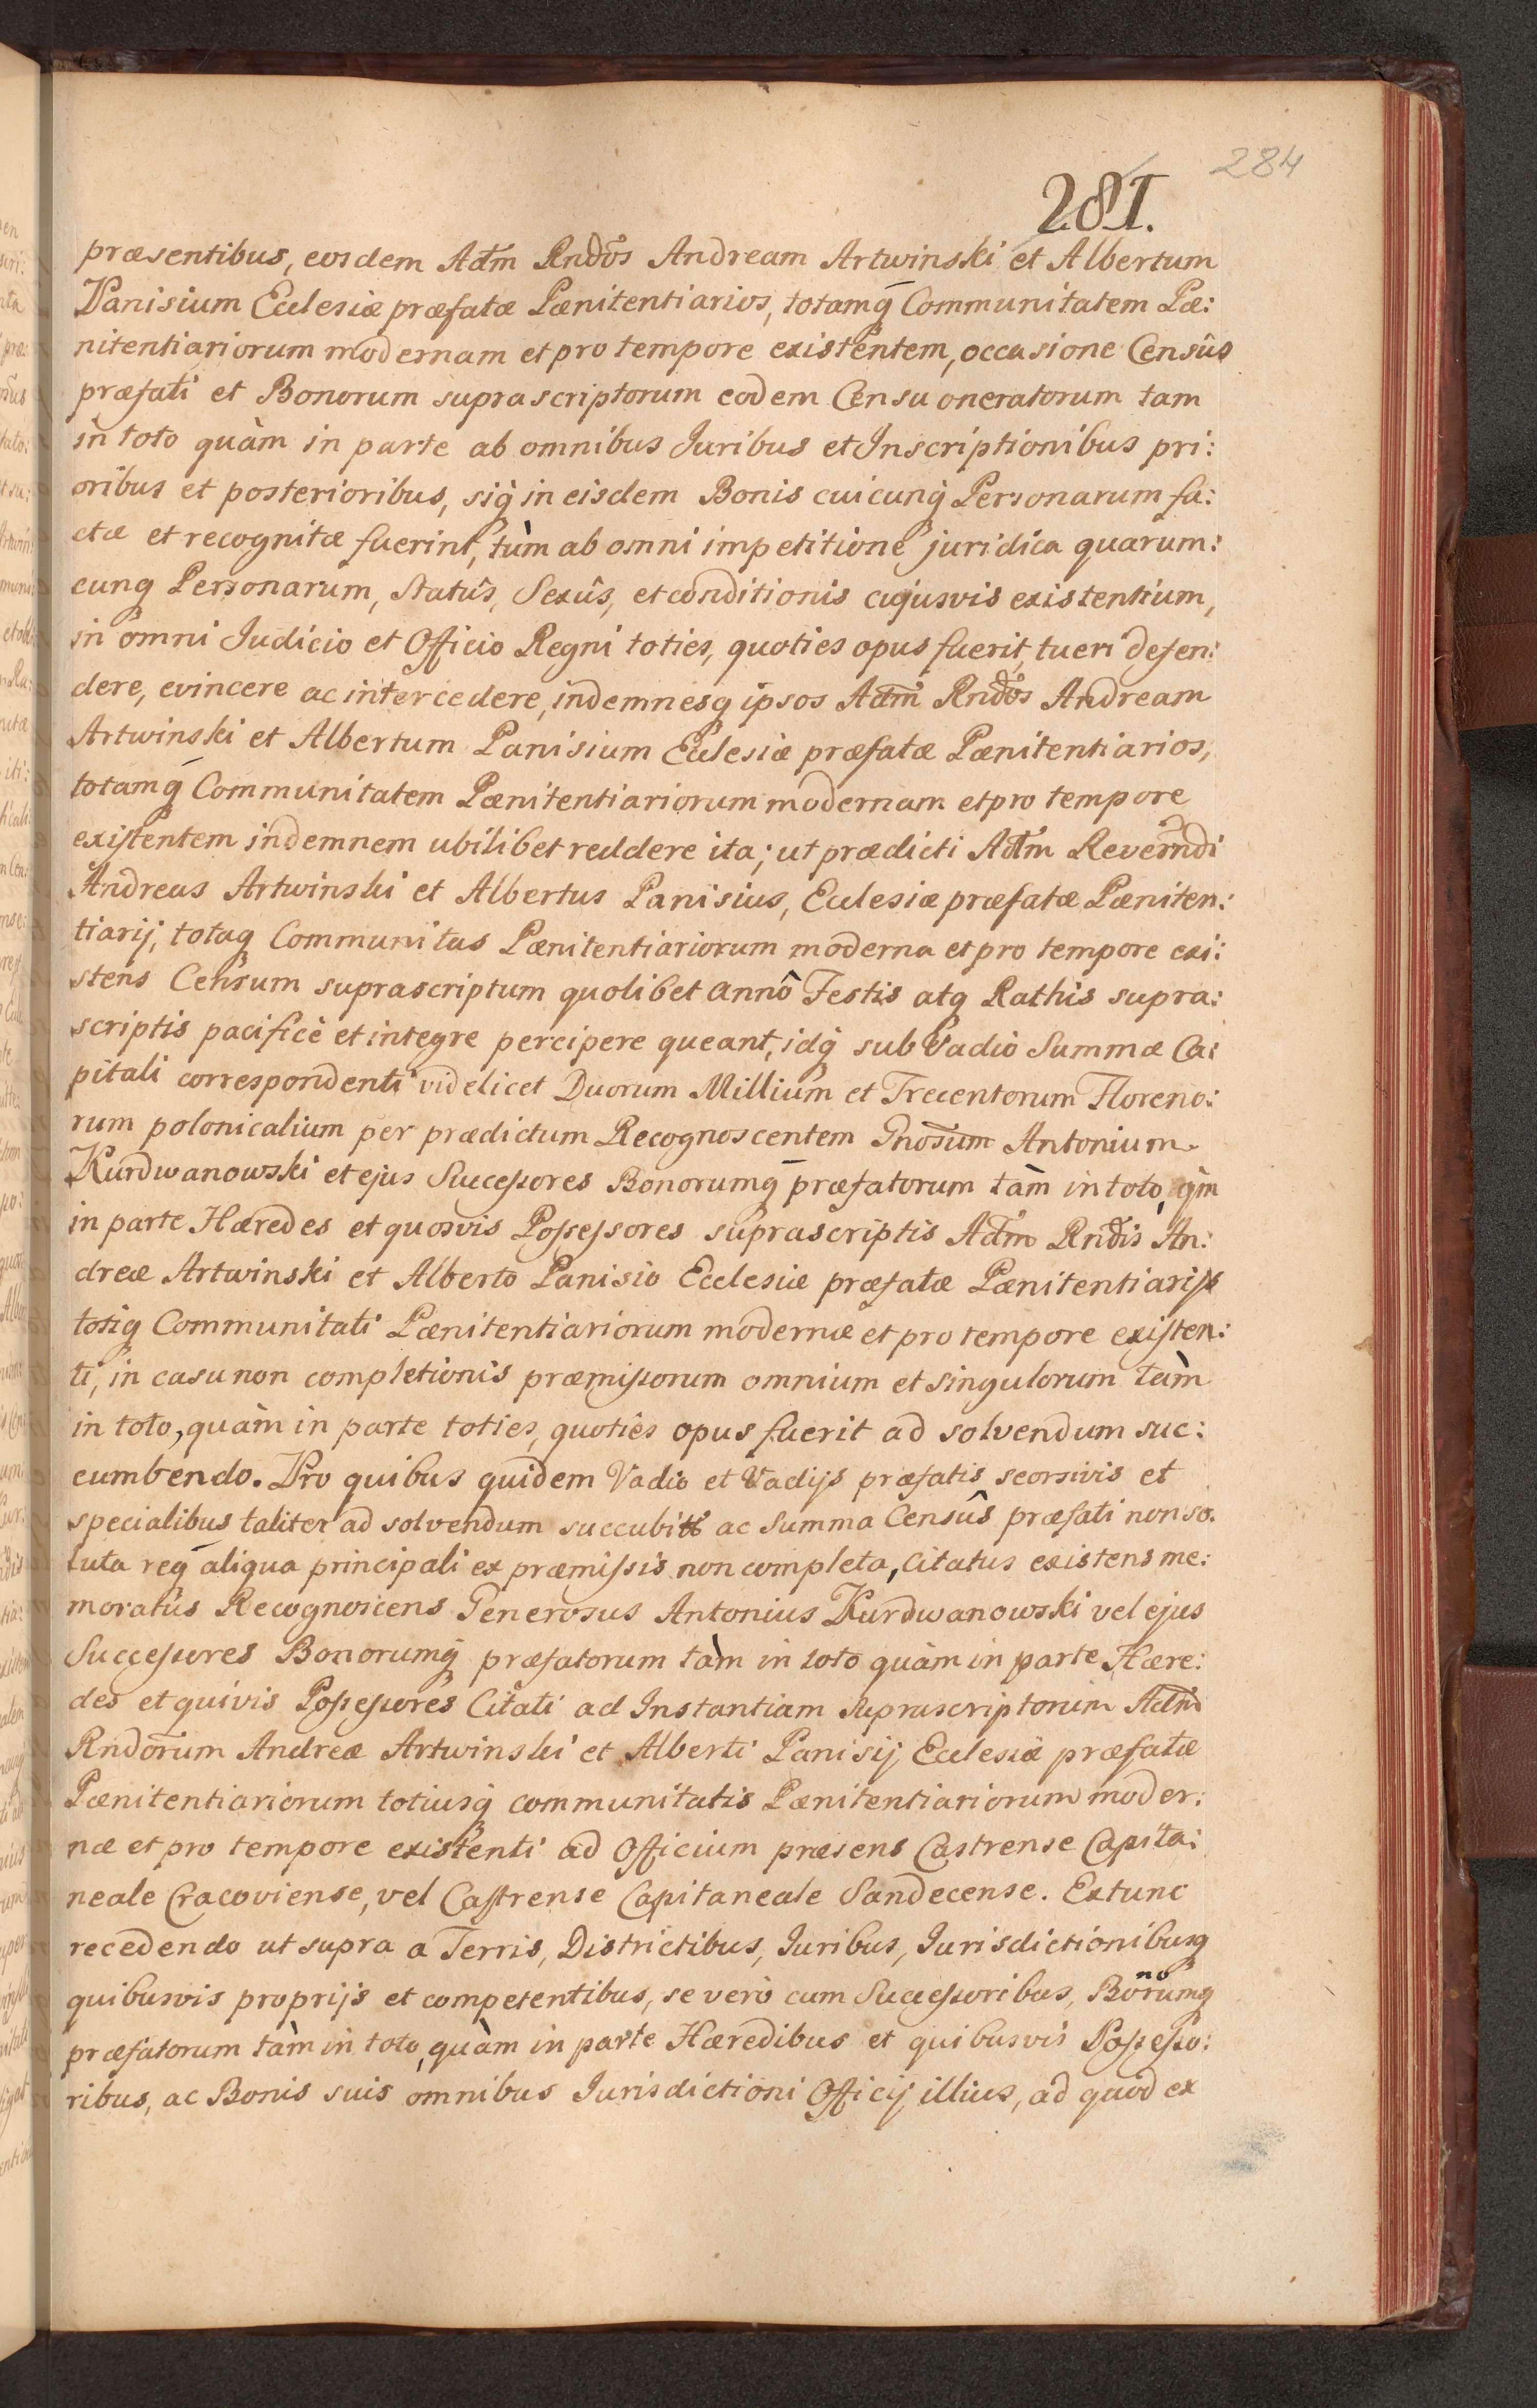 284
281.
præsentibus, eosdem Adm Rndos Andream Artwinski et Albertum
Panisium Ecclesiæ præfatæ Pænitentiarios, totamq Communitatem Pæ:
nitentiariorum modernam et pro tempore existentem, occasione Censûs
præfati et Bonorum suprascriptorum eodem Censu oneratorum tam
in toto quàm in parte ab omnibus Juribus et Inscriptionibus pri:
oribus et posterioribus, siq in eisdem Bonis cuicunq Personarum fa:
ctæ et recognitæ fuerint, tùm ab omni impetitione juridica quarum:
cunq Personarum, Statûs, Sexûs, et conditionis cujusvis existentium,
in omni Judicio et Officio Regni toties, quoties opus fuerit, tueri defen:
dere, evincere ac intercedere, indemnesq ipsos Adm Rndos Andream
Artwinski et Albertum Panisium Ecclesiæ præfatæ Pænitentiarios,
totamq Communitatem Pænitentiariorum modernam et pro tempore
existentem indemnem ubilibet reddere ita; ut prædicti Adm Reverndi
Andreas Artwinski et Albertus Panisius, Ecclesiæ præfatæ Pæniten:
tiarij, totaq Communitas Pænitentiariorum moderna et pro tempore exi:
stens Censum suprascriptum quolibet annô Festis atq Rathis supra:
scriptis pacificè et integre percipere queant, idq sub Vadio Summæ Ca:
pitali correspondenti videlicet Duorum Millium et Trecentorum Floreno:
rum polonicalium per prædictum Recognoscentem Gnosum Antonium
Kurdwanowski et ejus Successores Bonorumq præfatorum tàm in toto, qm
in parte Hæredes et quosvis Possessores suprascriptis Adm Rndis An:
dreæ Artwinski et Alberto Panisio Ecclesiæ præfatæ Pænitentiarijs
totiq Communitati Pænitentiariorum modernæ et pro tempore existen:
ti, in casu non completionis præmissorum omnium et singulorum tàm
in toto, quàm in parte toties, quoties opus fuerit ad solvendum suc:
cumbendo. Pro quibus quidem Vadio et Vadijs præfatis seorsivis et
specialibus taliter ad solvendum succubitis ac Summa Censûs præfati non so.
luta req aliqua principali ex præmissis non completa, Citatus existens me:
moratus Recognoscens Generosus Antonius Kurdwanowski vel ejus
Successores Bonorumq præfatorum tàm in toto quàm in parte Hære:
des et quivis Possessores Citati ad Instantiam suprascriptorum Adm
Rndorum Andreæ Artwinski et Alberti Panisij Ecclesiæ præfatæ
Pænitentiariorum totiusq communitatis Pænitentiariorum moder:
næ et pro tempore existenti ad Officium præsens Castrense Capita:
neale Cracoviense, vel Castrense Capitaneale Sandecense. Extunc
recedendo ut supra a Terris, Districtibus, Juribus, Jurisdictionibusq
quibusvis proprijs et competentibus, se verò cum Successoribus, Bonorumq
præfatorum tàm in toto, quàm in parte Hæredibus et quibusvis Possesso:
ribus, ac Bonis suis omnibus Jurisdictioni Officij illius, ad quod ex